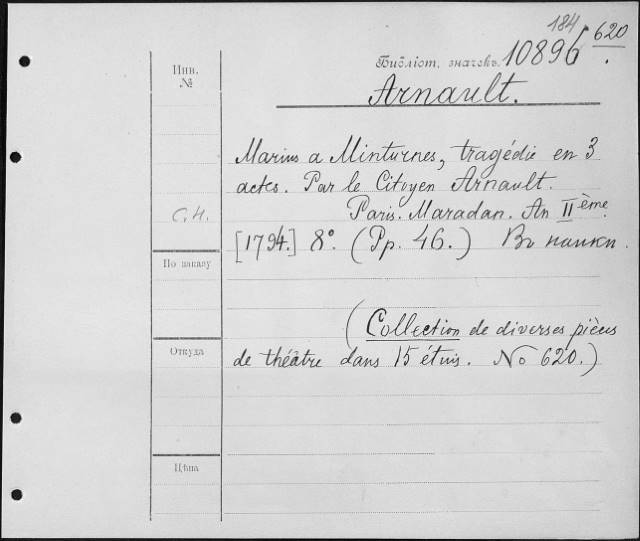 184
620
Библіот. значекъ. 10896.
Инв.
№
Arnault.
Marius a Minturnes, tragédie en 3
actes. Par le Citoyen Arnault.
Paris. Maradan. An IIème.
[1794.] 8°. (Pp. 46.)
По заказу
(Collection de diverses pièces
Откуда
de théâtre dans 15 étuis. No 620.)
Цѣна